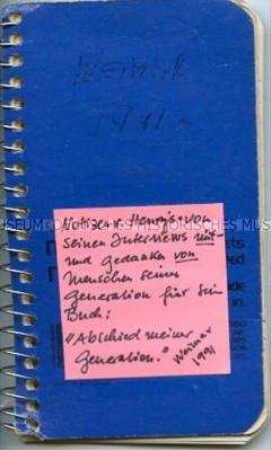 Weimar
1991
Notizen Henrys von
seinen Interviews mit
und gedanken von
Menschen seiner
Generation für sein
Buch:
"Abschied meiner
Generation."
Weimar
1991